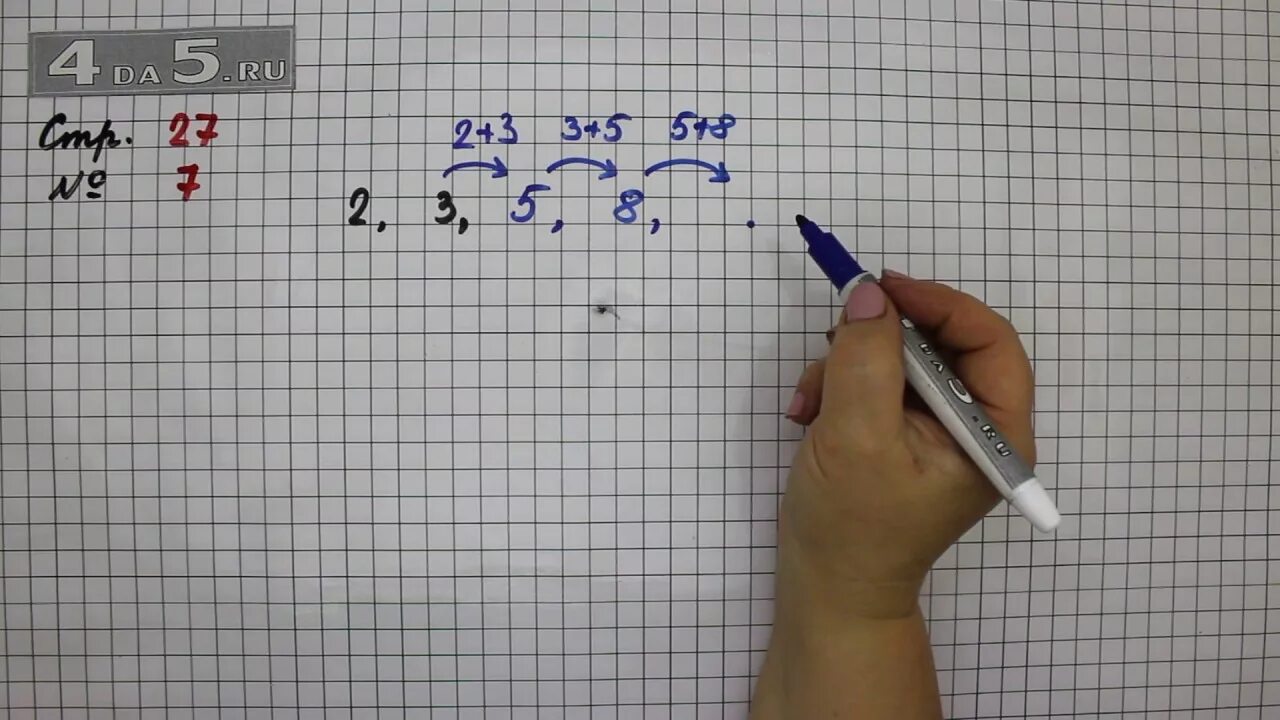 4 DA 5.RU
Стр. 27
№ 7
2+3 3+5 5+8
2, 3, 5, 8, .